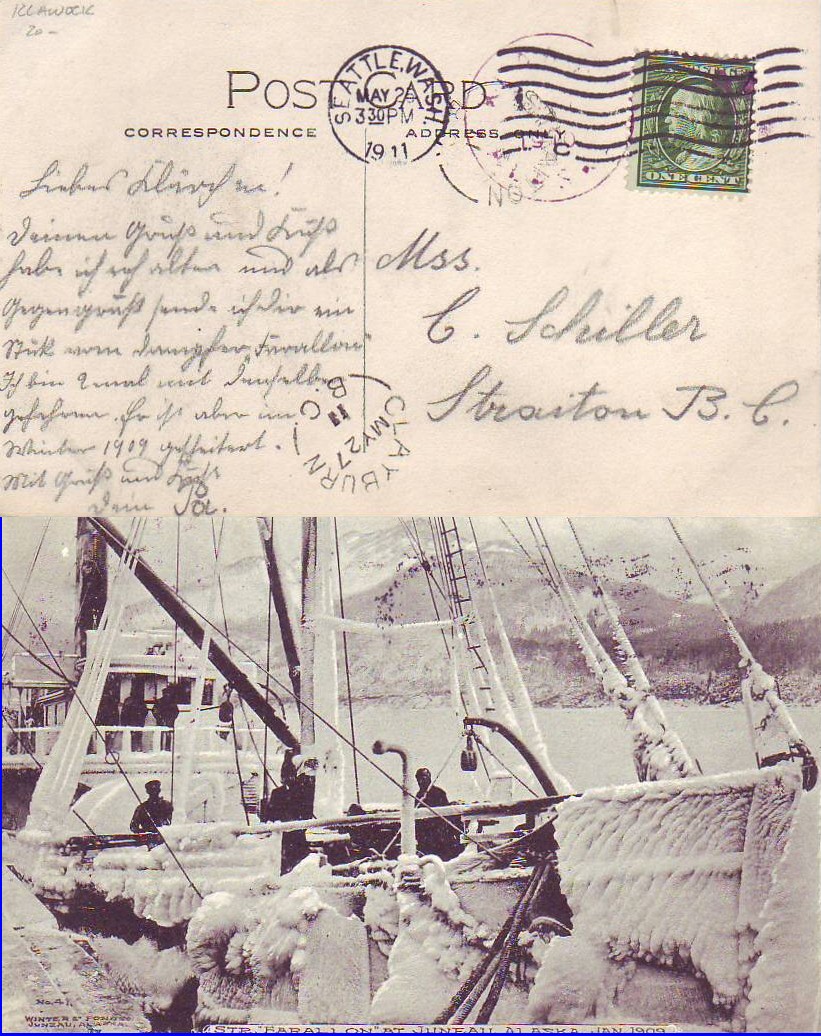 KLAWOCK
20-
POST CARD
CORRESPONDENCE
ADDRESS ONLY
SEATTLE, WASH.
MAY 2
3 30 PM
1911
ONE CENT
Liebes Klärchen!
Deinen Gruß und Kuß
habe ich erhalten und als
Gegengruß sende ich Dir ein
Stük vom Dampfer "Farallon"
Ich bin 2mal mit demselben
gefahren. Er ist aber im
Winter 1909 gescheitert.
Mit Gruß und Kuß
Dein
Mss.
C. Schiller
Straiton B. C.
CLAYBURN
B.C.
MY 27
11
No. 41.
WINTER & POND CO
JUNEAU, ALASKA.
STR. "FARALLON" AT JUNEAU, ALASKA, JAN. 1909